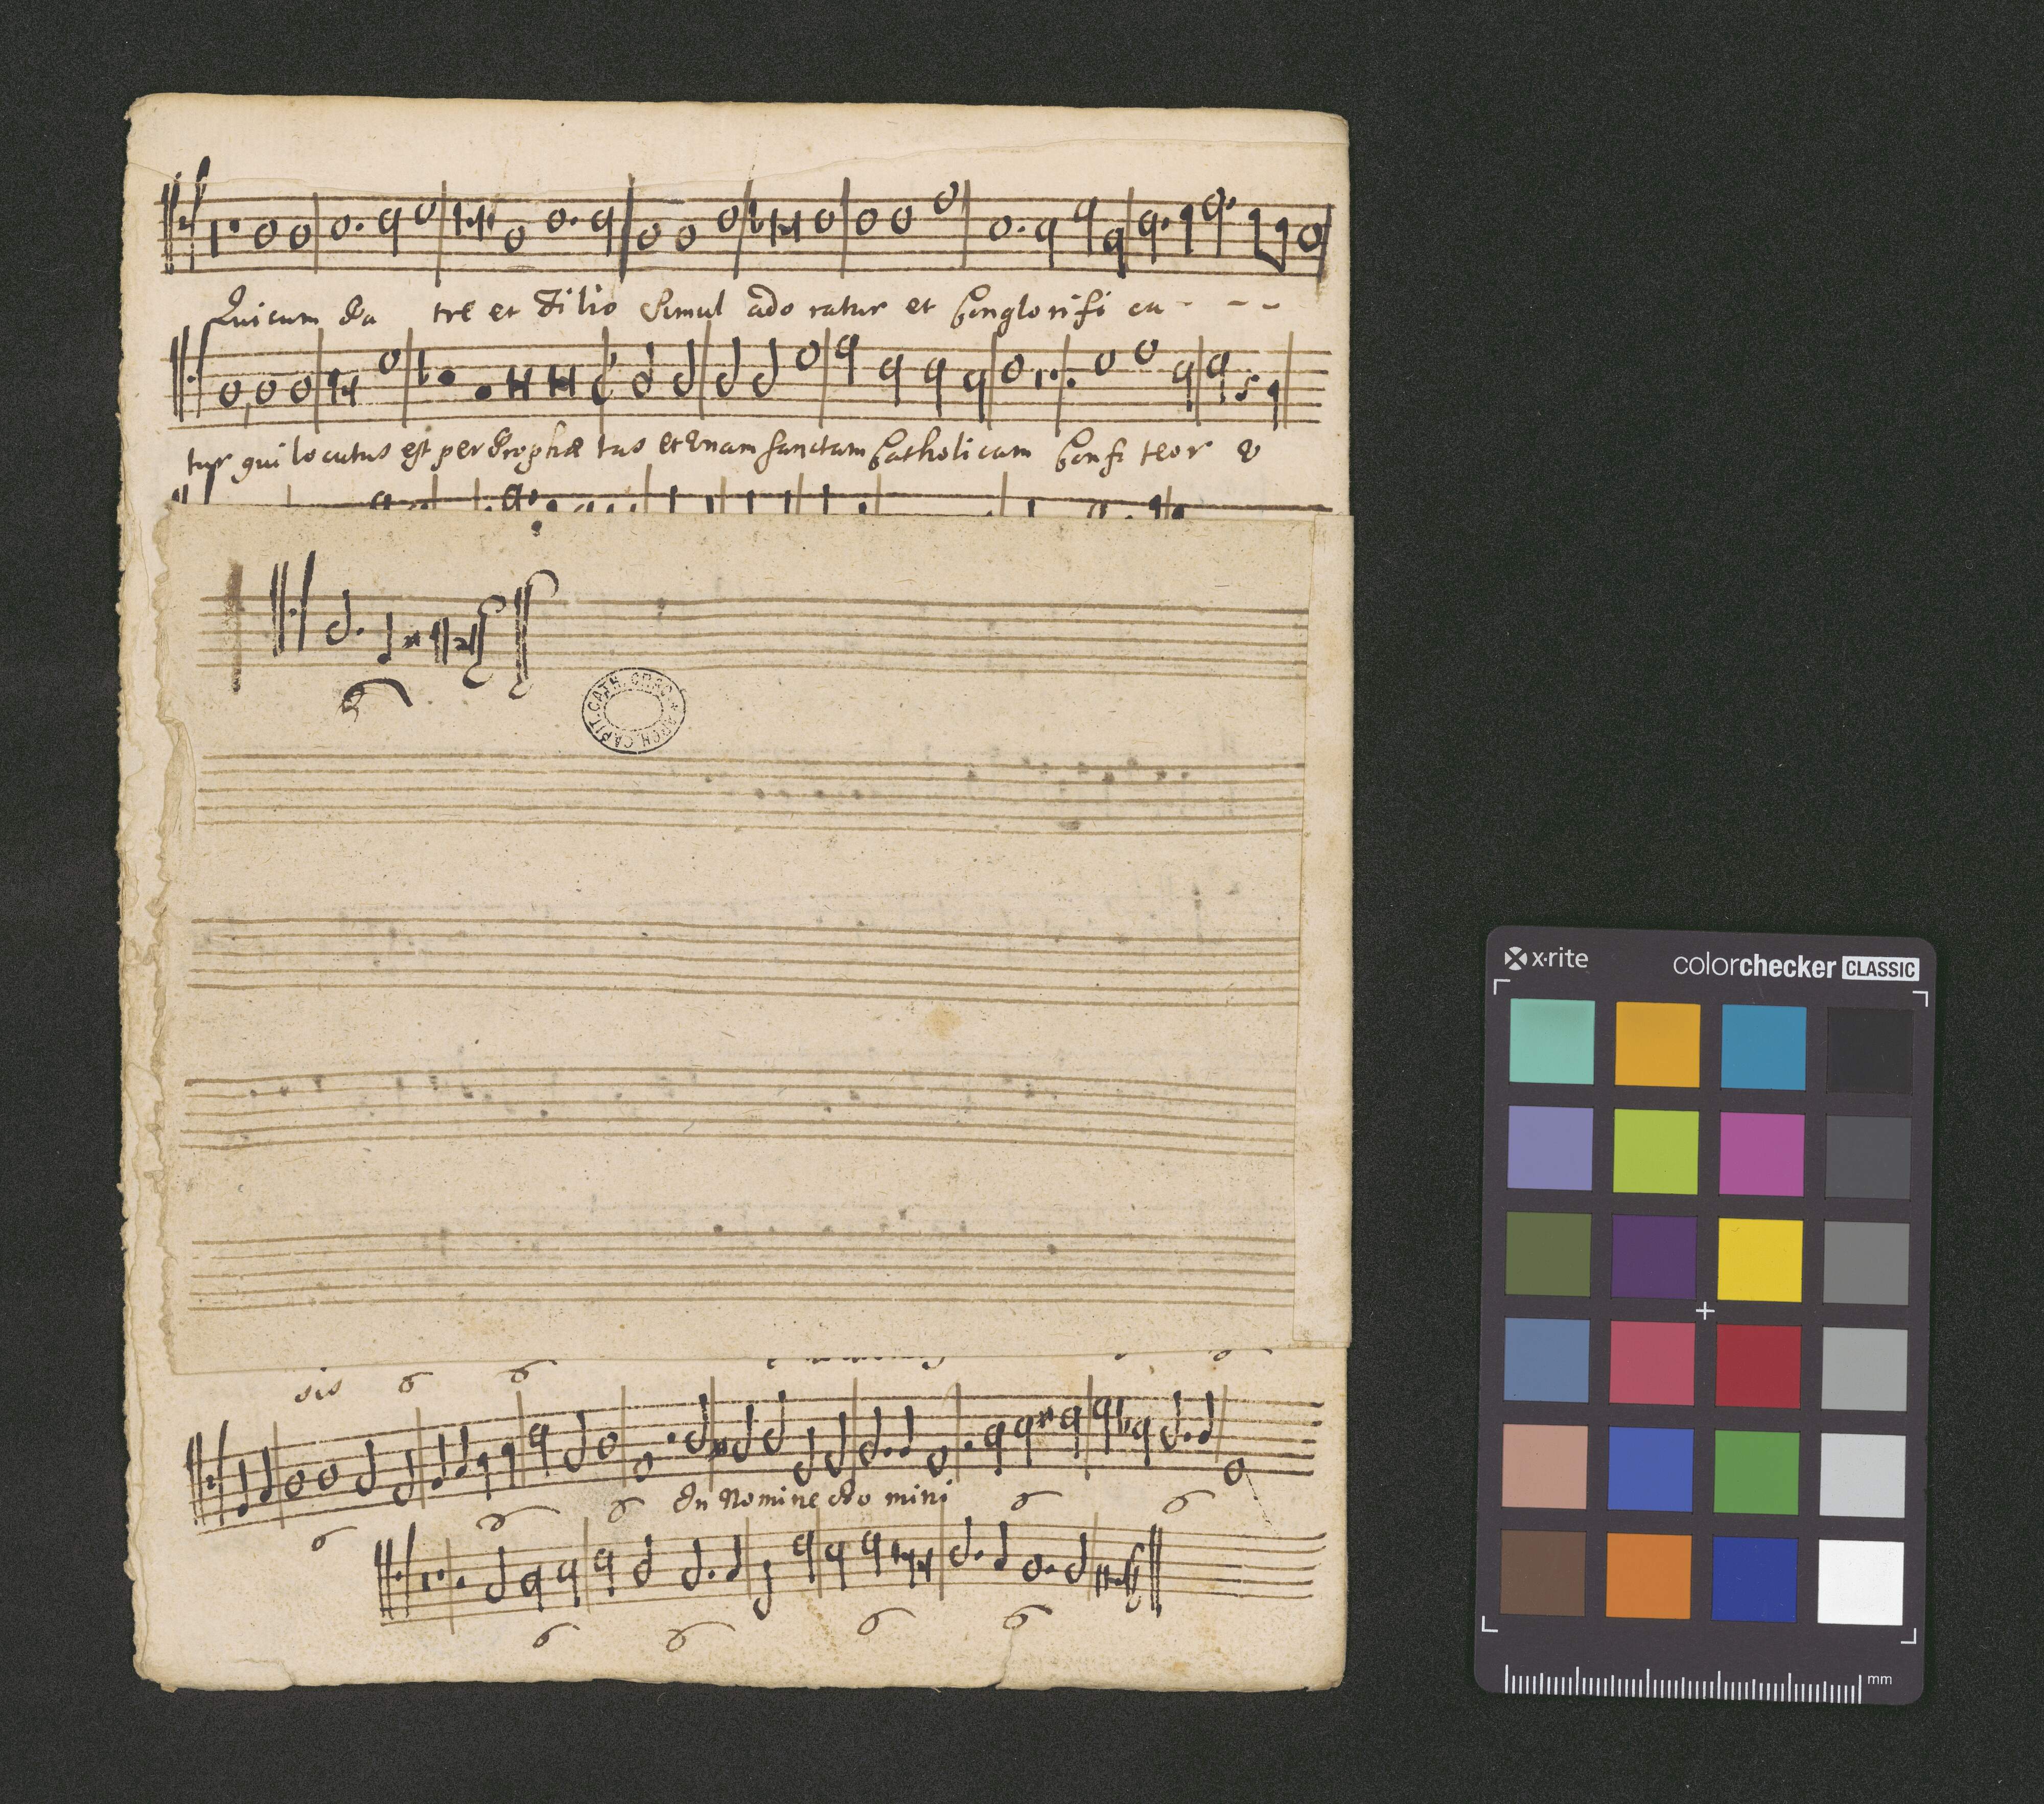 Qui cum Pa tre et Filio Simul ado ratur et Conglorifi ca - - -
tur qui locutus est per Prophæ tas et Unam Sanctam Catholicam Confi teor U
ARCH. CAPIT. CATH. CRAC.
sis
In Nomine Do mini
x·rite
colorchecker CLASSIC
mm